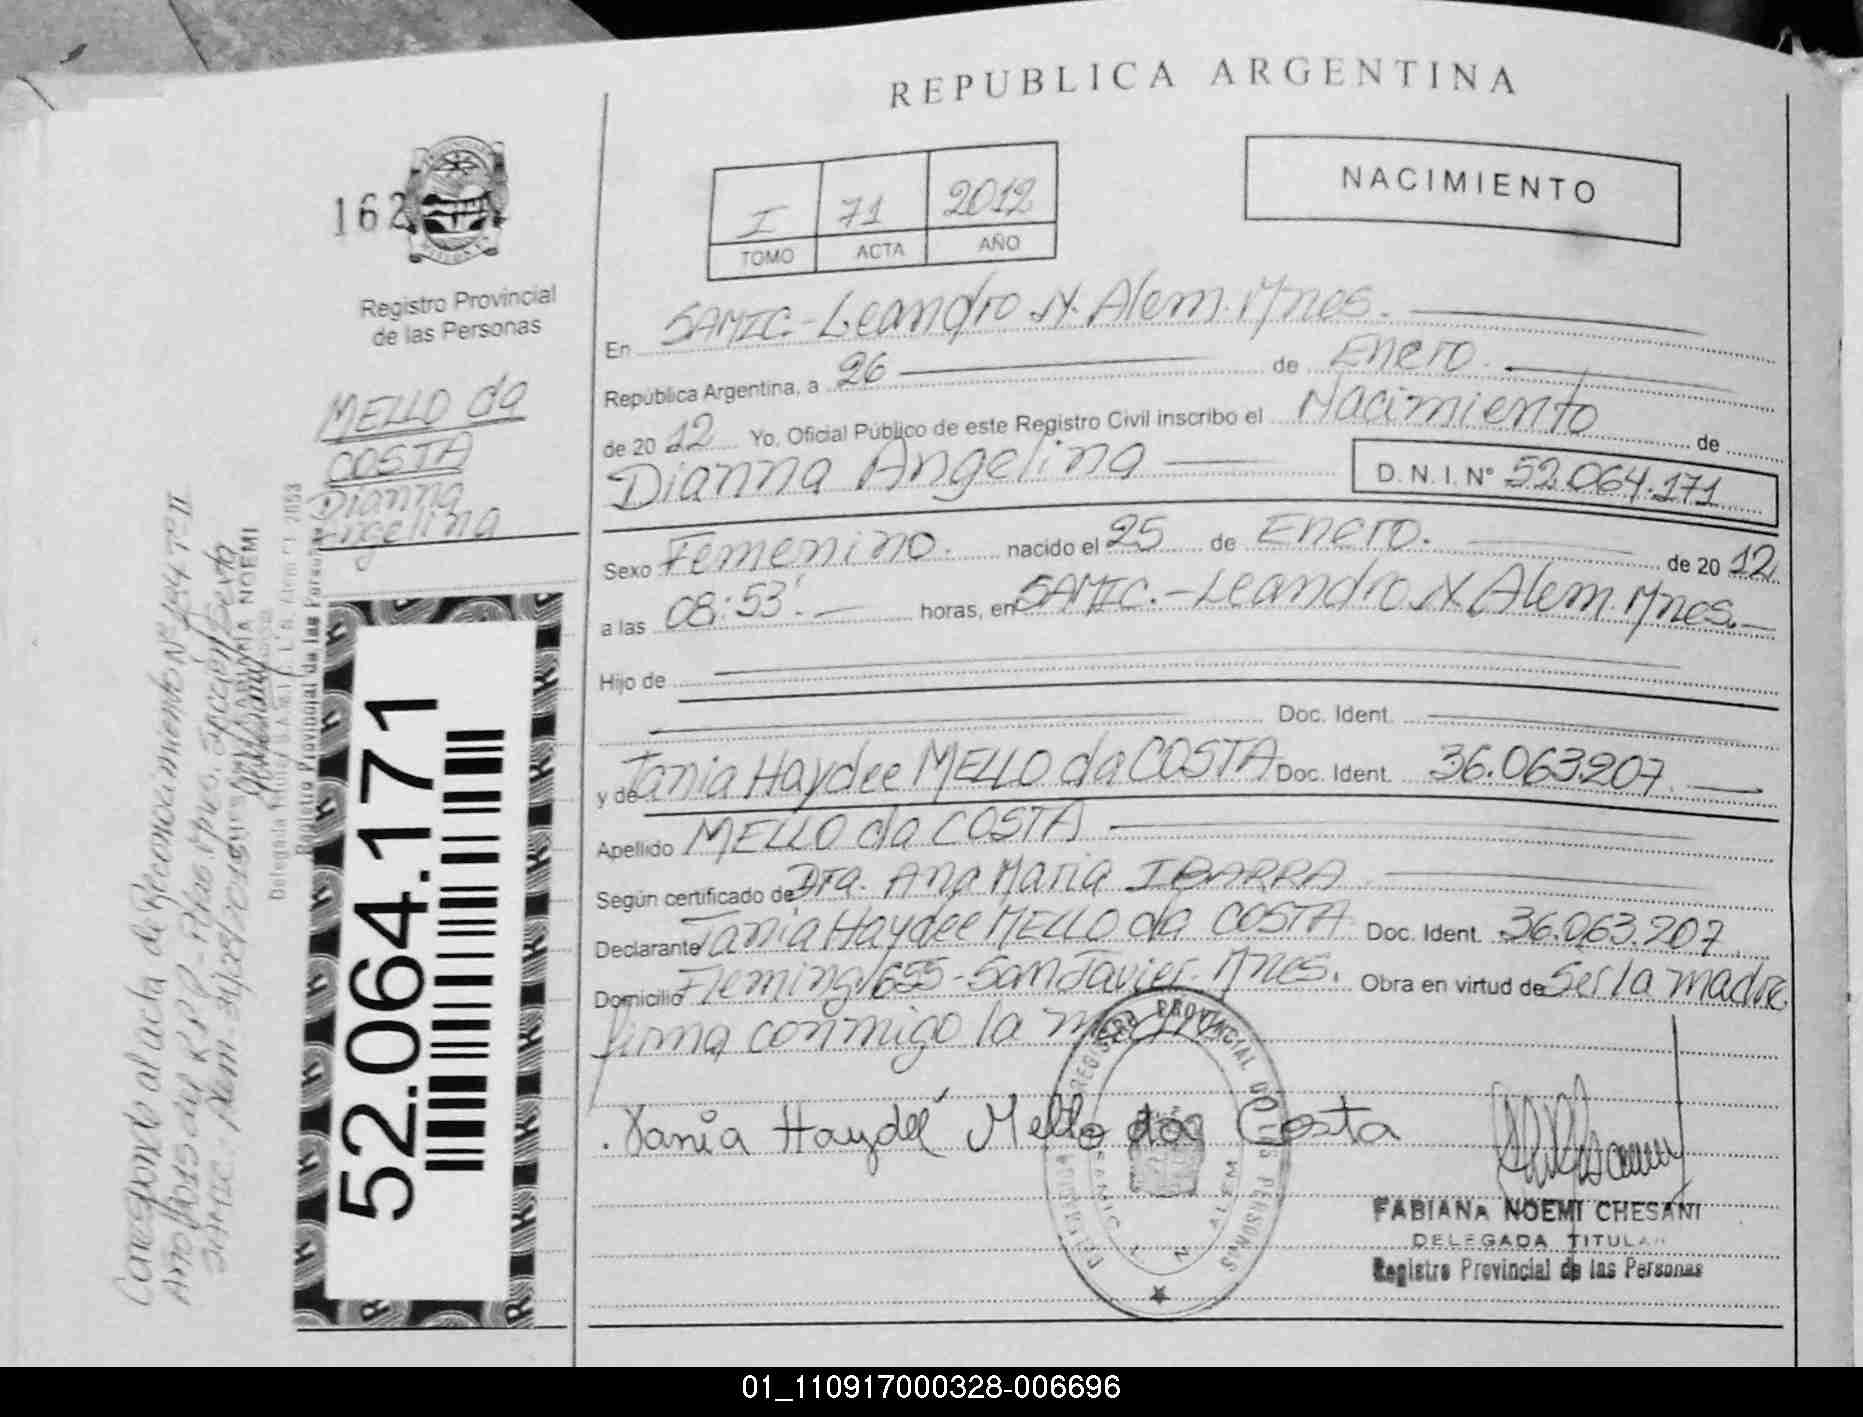 REPUBLICA ARGENTINA
162
Registro Provincial
de las Personas
I 71 2012
TOMO ACTA AÑO
NACIMIENTO
MELLO da
COSTA
Dianna
Angelina
En SAMIC.-Leandro N. Alem. Mnes.
República Argentina, a 26 de Enero.
de 2012 Yo, Oficial Público de este Registro Civil inscribo el Nacimiento de
Dianna Angelina D.N.I. N° 52.064.171
Sexo Femenino. nacido el 25 de Enero. de 2012
a las 08:53'. horas, en SAMIC.-Leandro N Alem. Mnes.
Hijo de
Doc. Ident.
y de Tania Haydee MELLO da COSTA Doc. Ident. 36.063.207.
Apellido MELLO da COSTA
Según certificado de Dra. Ana Maria IBARRA
Declarante Tania Haydee MELLO da COSTA Doc. Ident. 36.063.207
Domicilio Fleming 1655-San Javier. Mnes. Obra en virtud de Ser la madre
firma conmigo la madre
Tania Haydeé Mello da Costa
REGISTRO PROVINCIAL DE LAS PERSONAS
SAMIC L N ALEM
FABIANA NOEMI CHESANI
DELEGADA TITULAR
Registro Provincial de las Personas
52.064.171
Corresponde al acta de Reconocimiento N° 104 T° II
Año 2015 del R.P.P.
Alem. 31/08/2015
NOEMI
Delegada Titular
Registro Provincial de las Personas
01_110917000328-006696